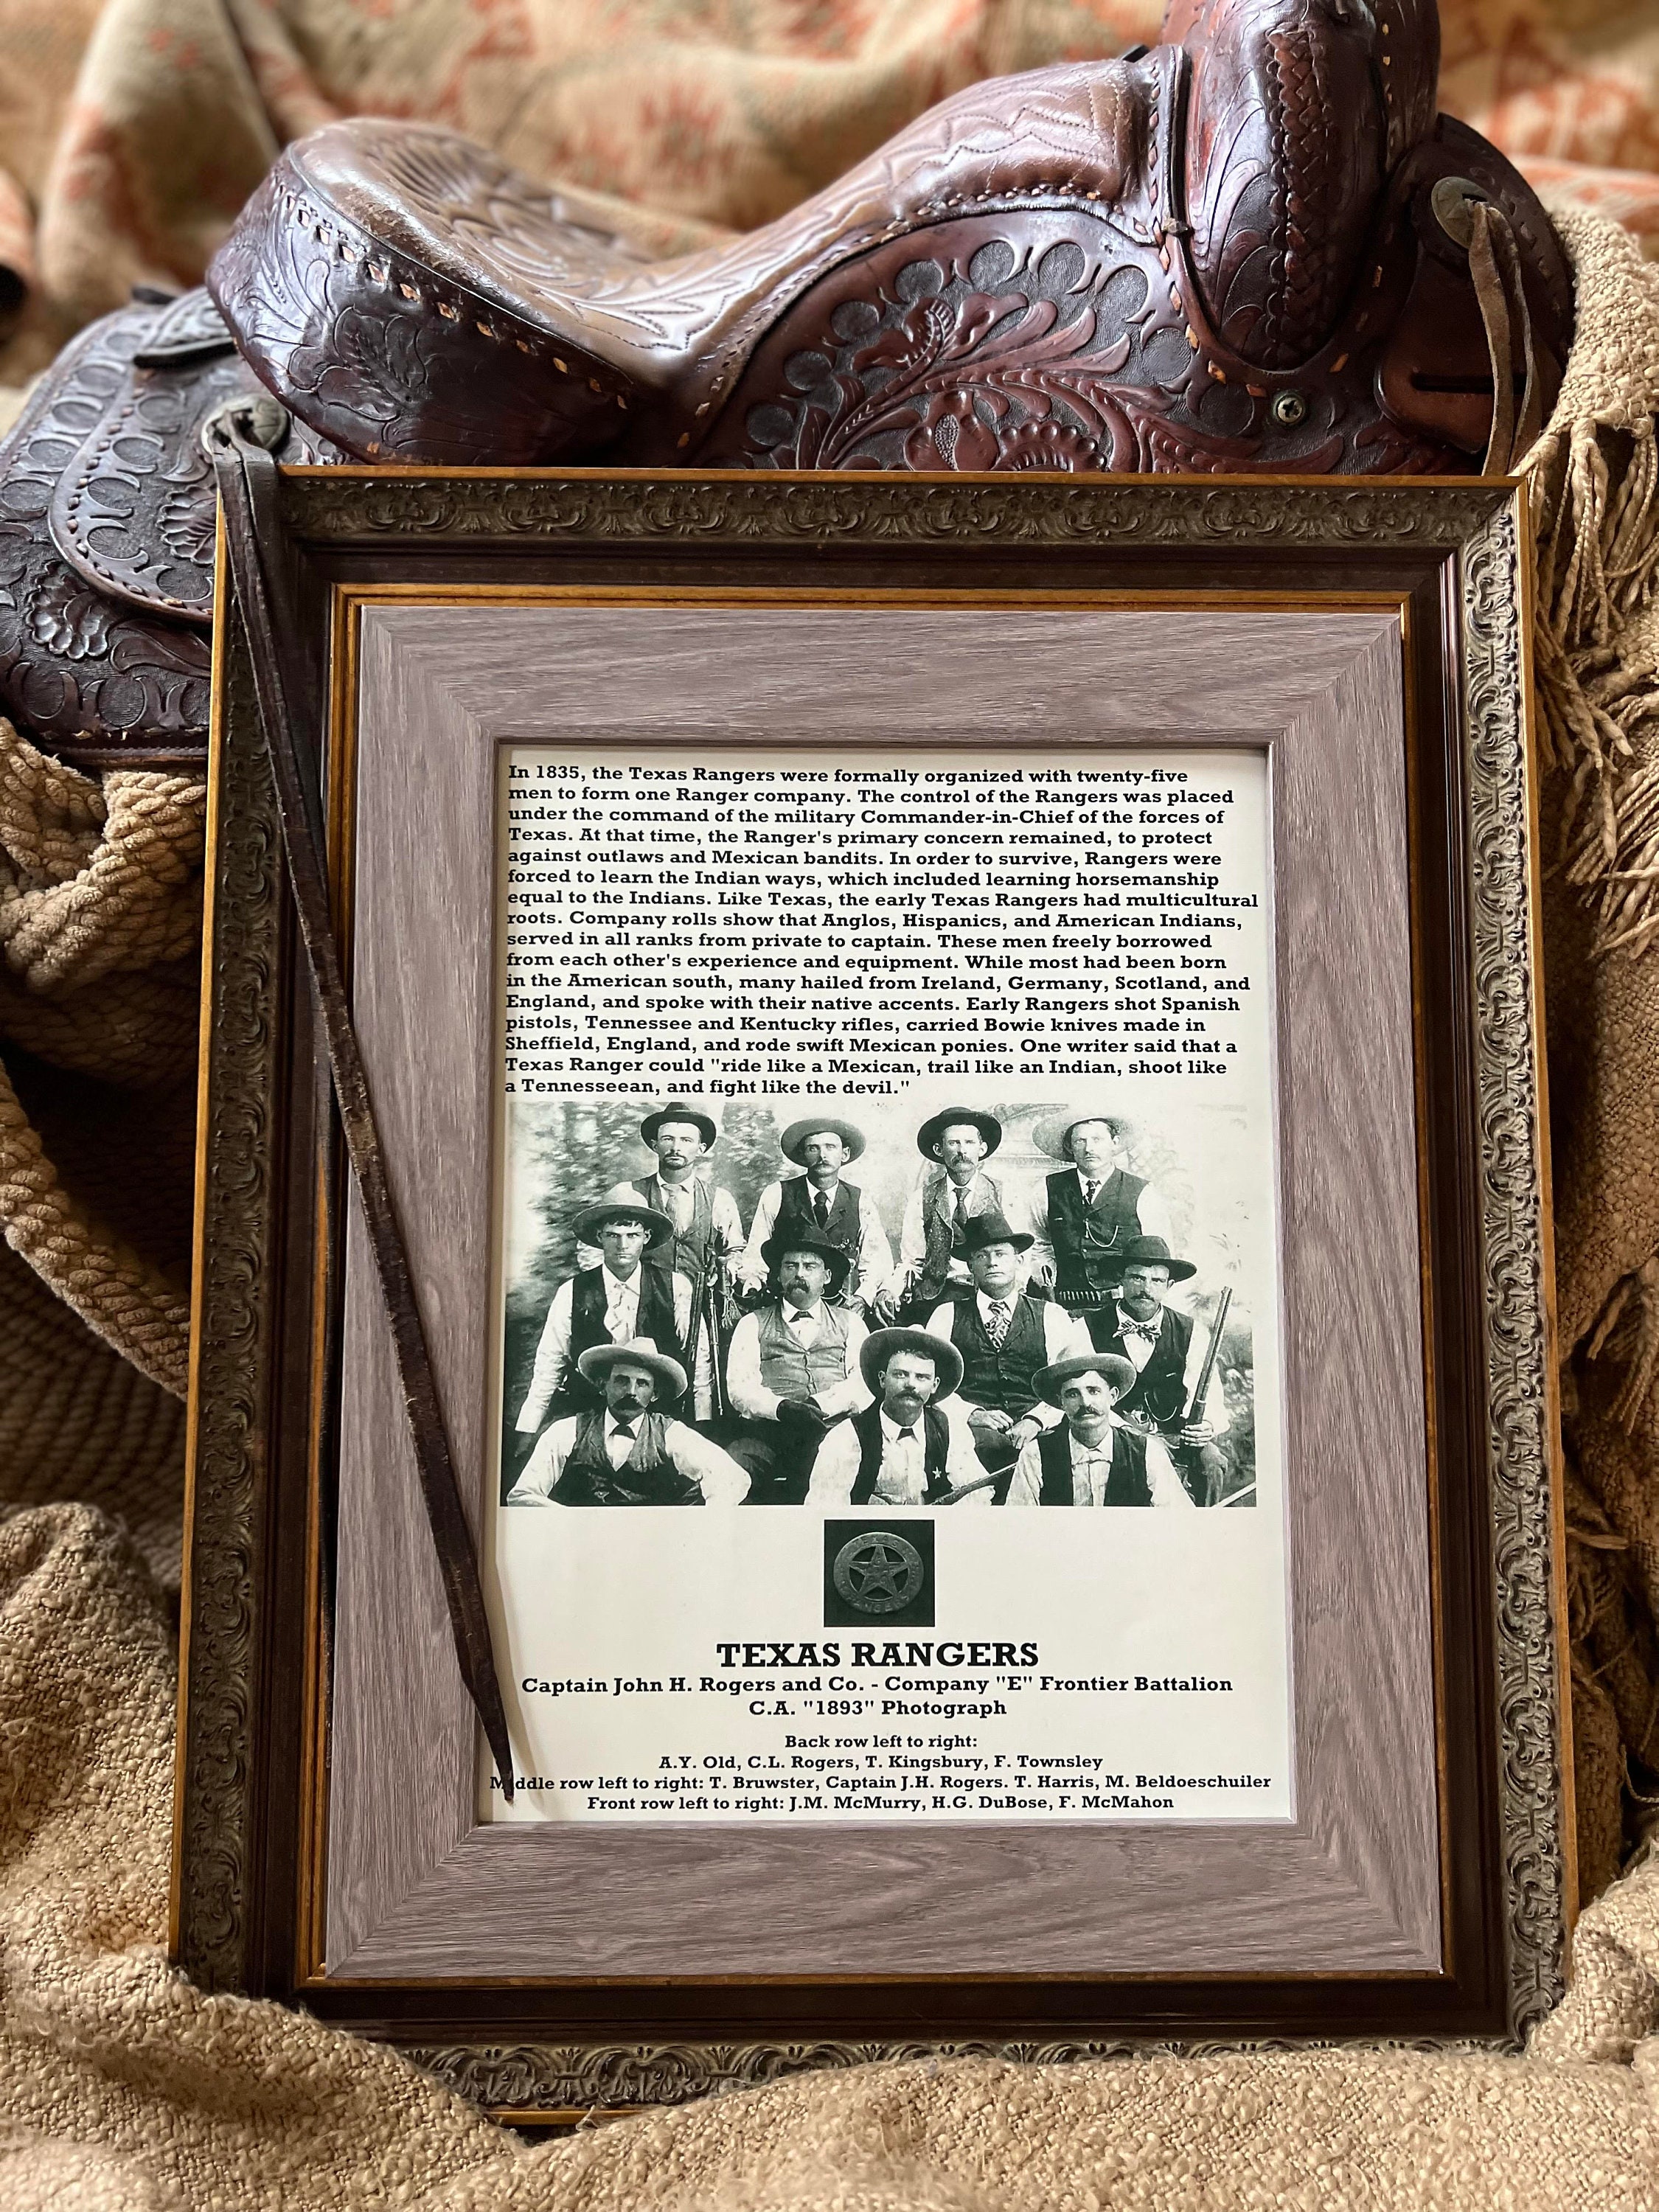 In 1835, the Texas Rangers were formally organized with twenty-five
men to form one Ranger company. The control of the Rangers was placed
under the command of the military Commander-in-Chief of the forces of
Texas. At that time, the Ranger's primary concern remained, to protect
against outlaws and Mexican bandits. In order to survive, Rangers were
forced to learn the Indian ways, which included learning horsemanship
equal to the Indians. Like Texas, the early Texas Rangers had multicultural
roots. Company rolls show that Anglos, Hispanics, and American Indians,
served in all ranks from private to captain. These men freely borrowed
from each other's experience and equipment. While most had been born
in the American south, many hailed from Ireland, Germany, Scotland, and
England, and spoke with their native accents. Early Rangers shot Spanish
pistols, Tennessee and Kentucky rifles, carried Bowie knives made in
Sheffield, England, and rode swift Mexican ponies. One writer said that a
Texas Ranger could "ride like a Mexican, trail like an Indian, shoot like
a Tennesseean, and fight like the devil."
TEXAS
RANGERS
TEXAS RANGERS
Captain John H. Rogers and Co. - Company "E" Frontier Battalion
C.A. "1893" Photograph
Back row left to right:
A.Y. Old, C.L. Rogers, T. Kingsbury, F. Townsley
Middle row left to right: T. Bruwster, Captain J.H. Rogers. T. Harris, M. Beldoeschuiler
Front row left to right: J.M. McMurry, H.G. DuBose, F. McMahon